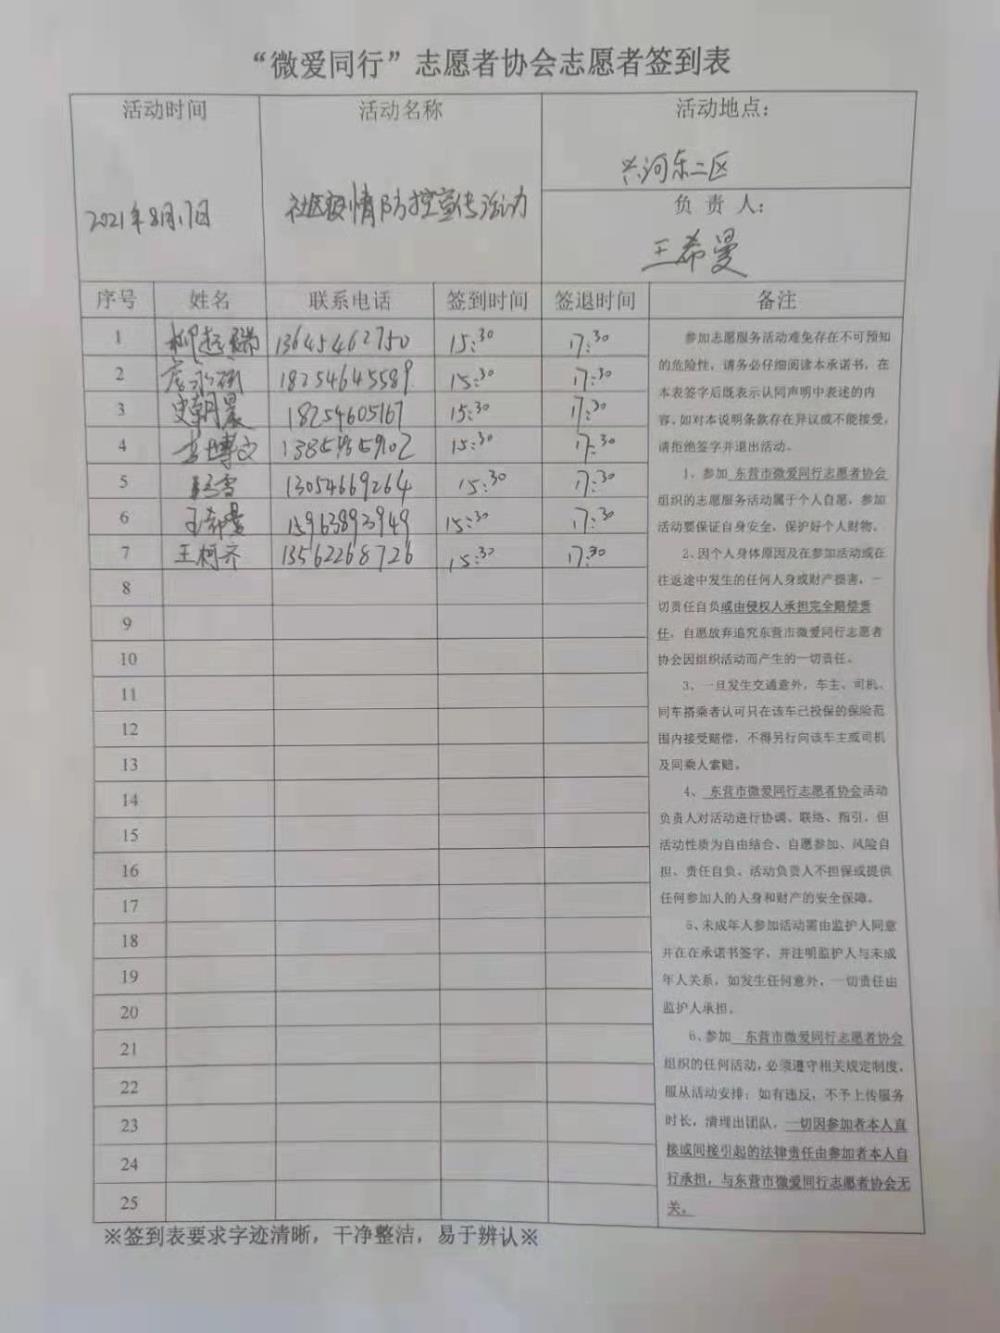 “微爱同行”志愿者协会志愿者签到表
活动时间 活动名称 活动地点：
兴河东二区
2021年8月17日 社区疫情防控宣传活动
负 责 人：
王希曼
序号 姓名 联系电话 签到时间 签退时间 备注
1 13645462750 15:30 17:30
2 18254645589 15:30 17:30
3 史朝晨 18254605167 15:30 17:30
4 博文 15:30 17:30
5 13054669264 15:30 17:30
6 王希曼 15963893949 15:30 17:30
7 王柯齐 13562268726 15:30 17:30
8
9
10
11
12
13
14
15
16
17
18
19
20
21
22
23
24
25
参加志愿服务活动难免存在不可预知
的危险性，请务必仔细阅读本承诺书，在
本表签字后既表示认同声明中表述的内
容。如对本说明条款存在异议或不能接受，
请拒绝签字并退出活动。
1、参加 东营市微爱同行志愿者协会
组织的志愿服务活动属于个人自愿，参加
活动要保证自身安全，保护好个人财物。
2、因个人身体原因及在参加活动或在
往返途中发生的任何人身或财产损害，一
切责任自负或由侵权人承担完全赔偿责
任，自愿放弃追究东营市微爱同行志愿者
协会因组织活动而产生的一切责任。
3、一旦发生交通意外，车主、司机、
同车搭乘者认可只在该车已投保的保险范
围内接受赔偿，不得另行向该车主或司机
及同乘人索赔。
4、 东营市微爱同行志愿者协会活动
负责人对活动进行协调、联络、指引，但
活动性质为自由结合、自愿参加、风险自
担、责任自负、活动负责人不担保或提供
任何参加人的人身和财产的安全保障。
5、未成年人参加活动需由监护人同意
并在在承诺书签字，并注明监护人与未成
年人关系，如发生任何意外，一切责任由
监护人承担。
6、参加 东营市微爱同行志愿者协会
组织的任何活动，必须遵守相关规定制度，
服从活动安排；如有违反，不予上传服务
时长，清理出团队，一切因参加者本人直
接或间接引起的法律责任由参加者本人自
行承担，与东营市微爱同行志愿者协会无
关。
※签到表要求字迹清晰，干净整洁，易于辨认※